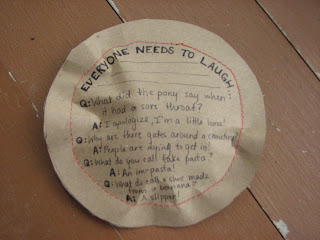 EVERYONE NEEDS TO LAUGH
Q: What did the pony say when
it had a sore throat?
A: I apologize, I'm a little horse!
Q: Why are there gates around a cemetery?
A: People are dying to get in!
Q: What do you call fake pasta?
A: An im-pasta!
Q: What do call a shoe made
from a banana?
A: A slipper!